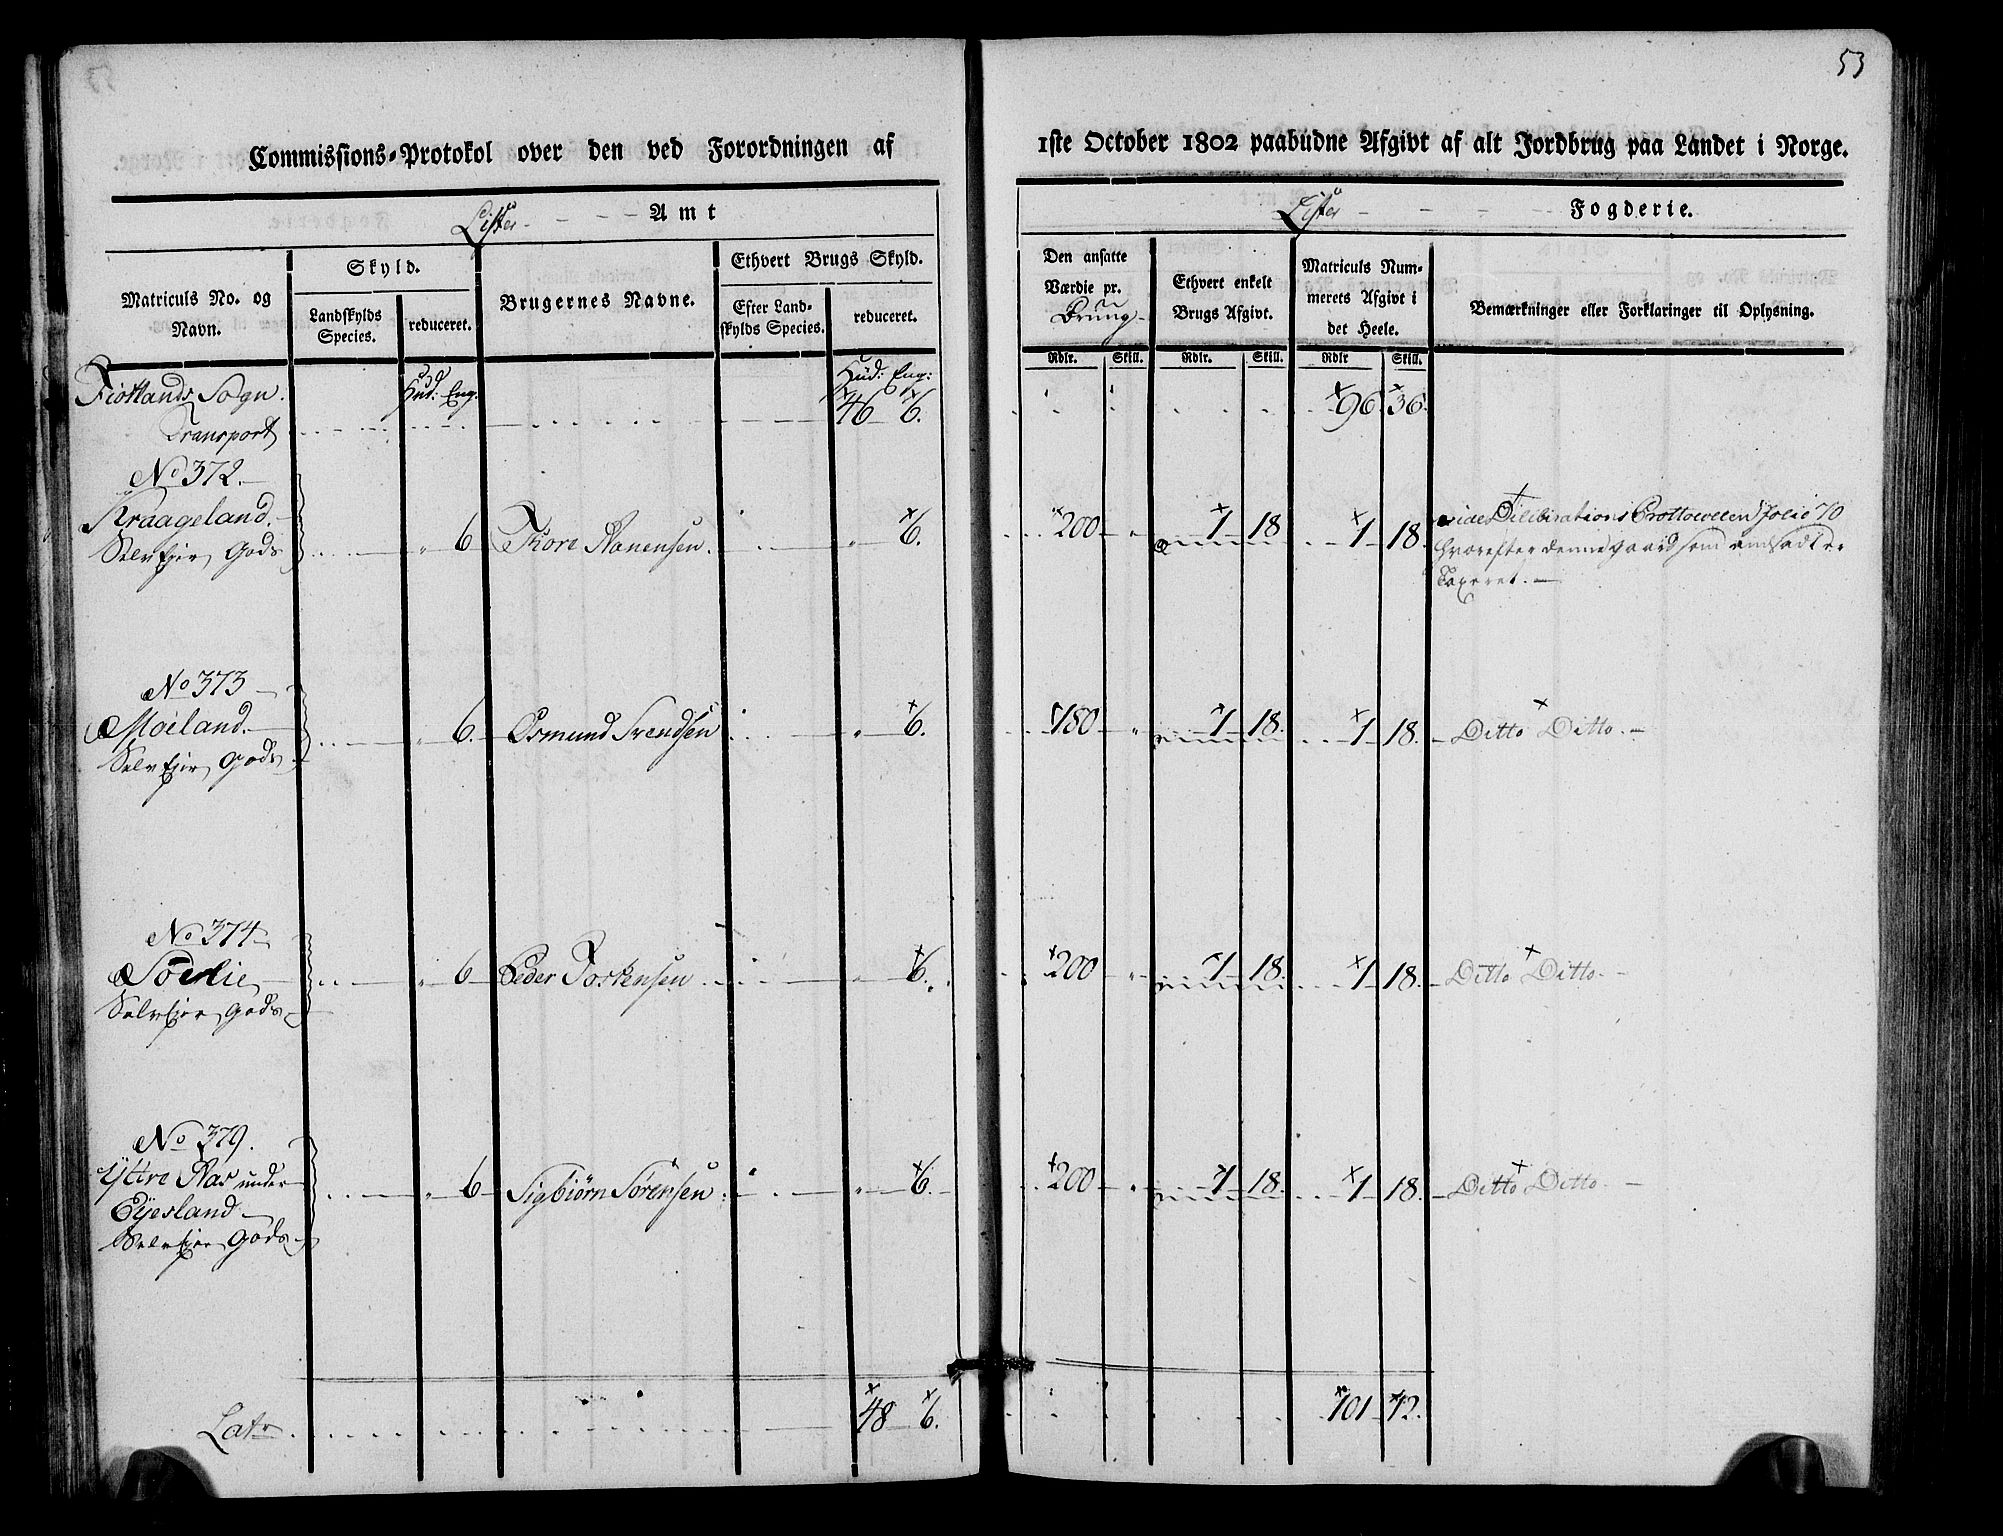 53
Commissions-Protokol over den ved Forordningen af 1ste October 1802 paabudne Afgivt af alt Jordbrug paa Landet i Norge.
Lister Amt
Lister Fogderie.
Matriculs No. og Navn.
Skyld.
Landskylds Species.
reduceret.
Brugernes Navne.
Ethvert Brugs Skyld.
Efter Landskylds Species.
reduceret.
Den ansatte Værdie pr. Brug
Ethvert enkelt Brugs Afgivt.
Matriculs Nummerets Afgivt i det Heele.
Bemærkninger eller Forklaringer til Oplysning.
Rdlr. Skill. Rdlr. Skill. Rdlr Skill.
Fiotlands Sogn. Hud: Eng: Hud: Eng:
Transport 46 6. 96 36.
No 372.
Kraageland.
Selv Ejer Gods " 6 Tore Aanensen. " 6. 200 " 1 18 1 18. vide Deliberations Prottocollen Folio 70
hvorefter denne gaard som andsadt er
Taxeret.
No 373
Moeland.
Selv Ejer Gods " 6. Osmund Svendsen " 6. 150 " 1 18. 1 18. Ditto Ditto.
No 374
Soelie
Selv Ejer Gods " 6 Peder Torkensen " 6. 200 " 1 18. 1 18. Ditto Ditto.
No 379.
Yttre Aas under
Eyesland
Selv Ejer Gods " 6 Sigbiørn Sørensen " 6. 200 " 1 18. 1 18. Ditto Ditto.
Latr 48 6. 101 12.